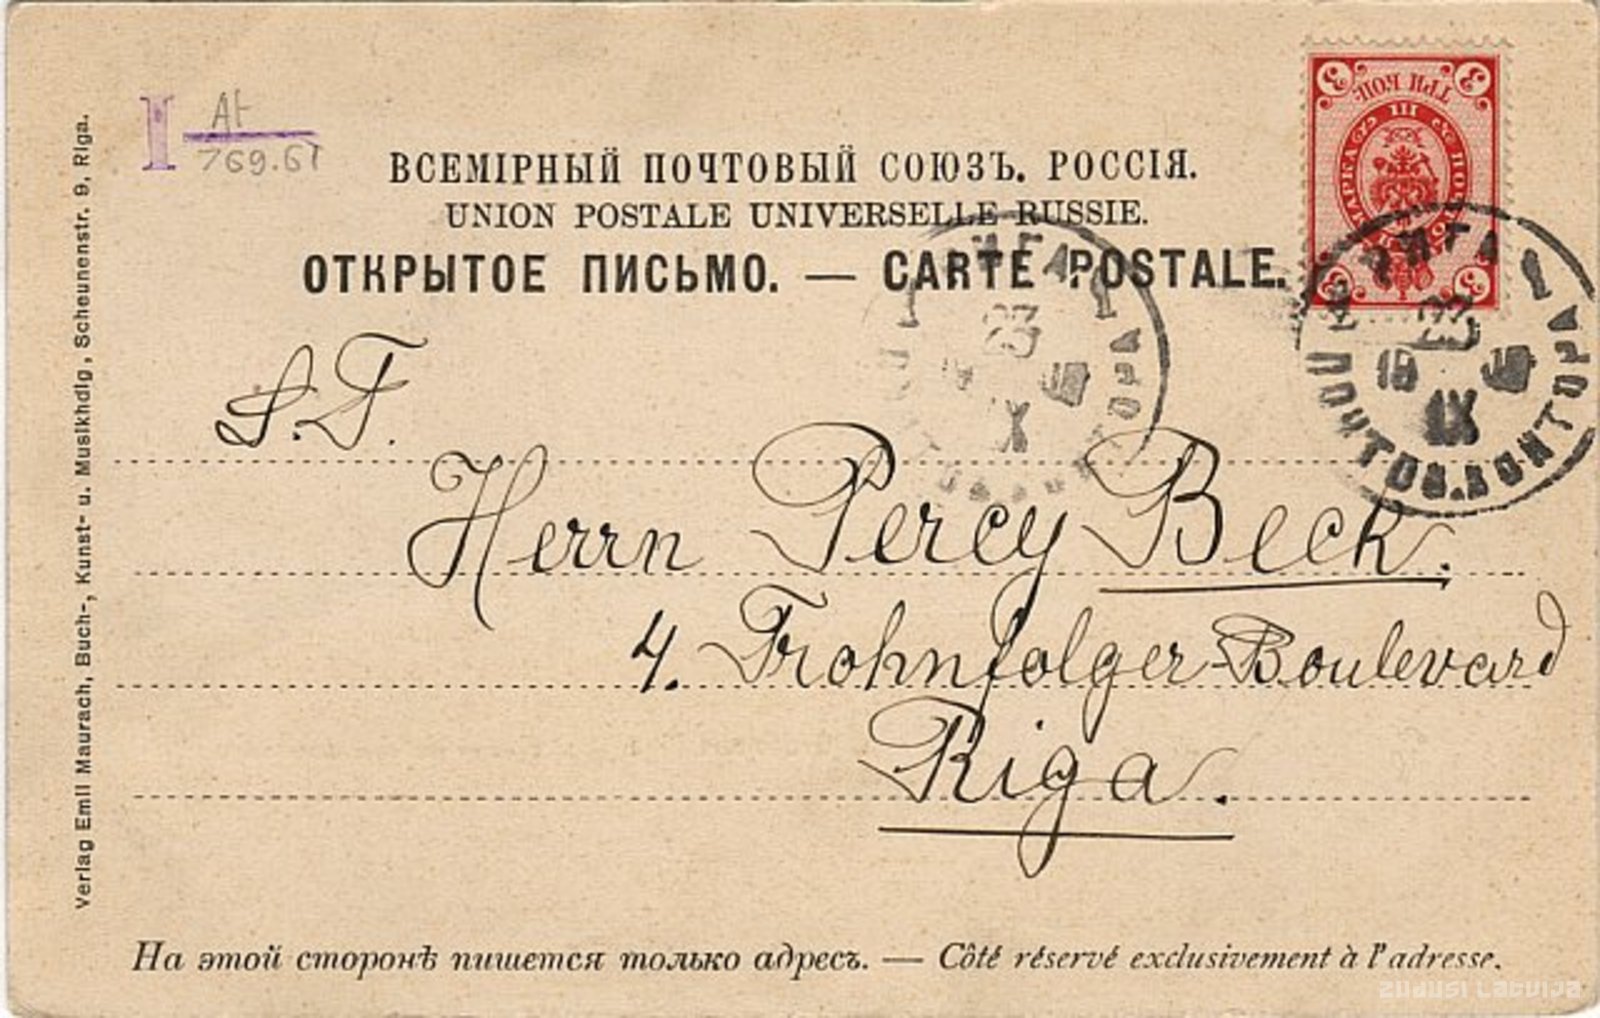 I At
769.61
ВСЕМІРНЫЙ ПОЧТОВЫЙ СОЮЗЪ. РОССІЯ.
UNION POSTALE UNIVERSELLE RUSSIE.
ОТКРЫТОЕ ПИСЬМО. — CARTE POSTALE.
3 ТРИ КОП 3
МАРКА III
РИГА 1
23
IX
РИГА 1
23
IX
ПОЧТОВ. КОНТОРА
S. T.
Herrn Percy Beck.
4. Trohnfolger-Boulevard
Riga.
Verlag Emil Maurach, Buch-, Kunst- u. Musikhdlg, Scheunenstr. 9, Riga.
На этой сторонѣ пишется только адресъ. — Côté réservé exclusivement à l'adresse.
zudusi latvija